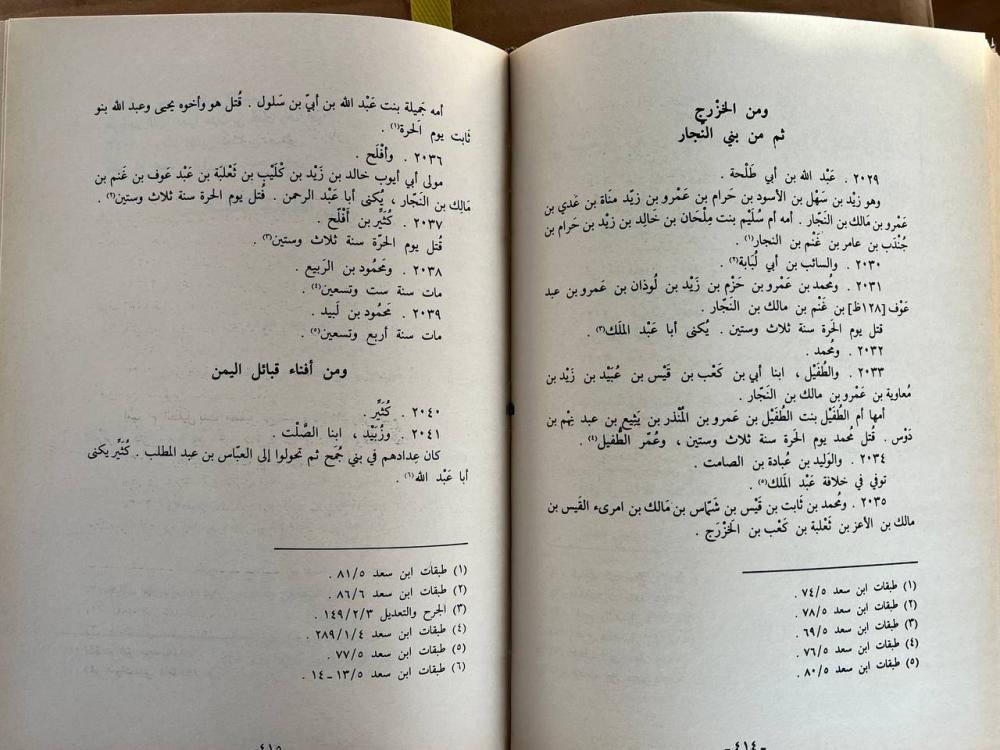 ومن الخزْرج
ثم من بني النّجار
٢٠٢٩ . عَبْد الله بن أبي طَلْحة .
وهو زيْد بن سَهْل بن الأسود بن حَرام بن عَمْرو بن زيّد مناة بن عَدي بن
عَمْرو بن مَالك بن النّجار . أمه أم سُلَيْم بنت مِلْحَان بن خَالد بن زيْد بن حَرام بن
جُنْدَب بن عامر بن غَنْم بن النجار(١) .
٢٠٣٠ . والسائب بن أبي لُبَابة(٢) .
٢٠٣١ . ومُحمد بن عَمْرو بن حَزْم بن زَيْد بن لُوذان بن عَمرو بن عبد
عَوْف [١٢٨ظ] بن غَنْم بن مالك بن النَجّار .
قتل يوم الحَرة سنة ثلاث وستين . يُكنى أبا عَبْد الملَك(٣) .
٢٠٣٢ . ومُحمد .
٢٠٣٣ . والطُفَيْل ، ابنا أبي بن كَعْب بن قَيْس بن عُبَيْد بن زَيْد بن
معاوية بن عَمْرو بن مالك بن النَجّار .
أمها أم الطُفَيْل بنت الطُفَيْل بن عَمرو بن المُنْذر بن يَثيع بن عبد نِهْم بن
دَوْس . قُتل مُحمد يوم الحَرة سنة ثلاث وستين ، وعُمّر الطُفيل(٤) .
٢٠٣٤ . والوَليد بن عُبادة بن الصامت .
توفي في خلافة عَبْد الملَك(٥) .
٢٠٣٥ . ومُحمد بن ثَابت بن قَيْس بن شَمّاس بن مَالك بن امرىء القَيس بن
مالك بن الأعز بن ثَعْلبة بن كَعْب بن الخَزْرَج .
(١) طبقات ابن سعد ٧٤/٥ .
(٢) طبقات ابن سعد ٧٨/٥ .
(٣) طبقات ابن سعد ٦٩/٥ .
(٤) طبقات ابن سعد ٧٦/٥ .
(٥) طبقات ابن سعد ٨٠/٥ .
- ٤١٤ -
أمه جَميلة بنت عَبْد الله بن أبيّ بن سَلول . قُتل هو وأخوه يحيى وعبد الله بنو
ثَابت يوم الحَرة(١) .
٢٠٣٦ . وأفْلَح .
مولى أبي أيوب خالد بن زَيْد بن كُلَيْب بن ثَعْلبَة بن عَبْد عَوف بن غَنم بن
مَالك بن النَجّار ، يُكنى أبا عَبْد الرحمن . قُتل يوم الحرة سنة ثلاث وستين(٢) .
٢٠٣٧ . كُثَيِّر بن أَفْلَح .
قُتل يوم الحَرّة سنة ثلاث وستين(٣) .
٢٠٣٨ . ومَحمُود بن الرَبيع .
مات سنة ست وتسعين(٤) .
٢٠٣٩ . مَحمُود بن لَبيد .
مات سنة أربع وتسعين(٥) .
ومن أفناء قبائل اليمن
٢٠٤٠ . كُثَيِّر .
٢٠٤١ . وزُبَيْد ، ابنا الصَّلْت .
كان عِدادهم في بني جُمح ثم تحولوا إلى العبّاس بن عبد المطلب . كُثَيِّر يكنى
أبا عَبْد الله(٦) .
(١) طبقات ابن سعد ٨١/٥ .
(٢) طبقات ابن سعد ٨٦/٦ .
(٣) الجرح والتعديل ١٤٩/٢/٣ .
(٤) طبقات ابن سعد ٢٨٩/١/٤ .
(٥) طبقات ابن سعد ٧٧/٥ .
(٦) طبقات ابن سعد ١٣/٥ – ١٤ .
٤١٥